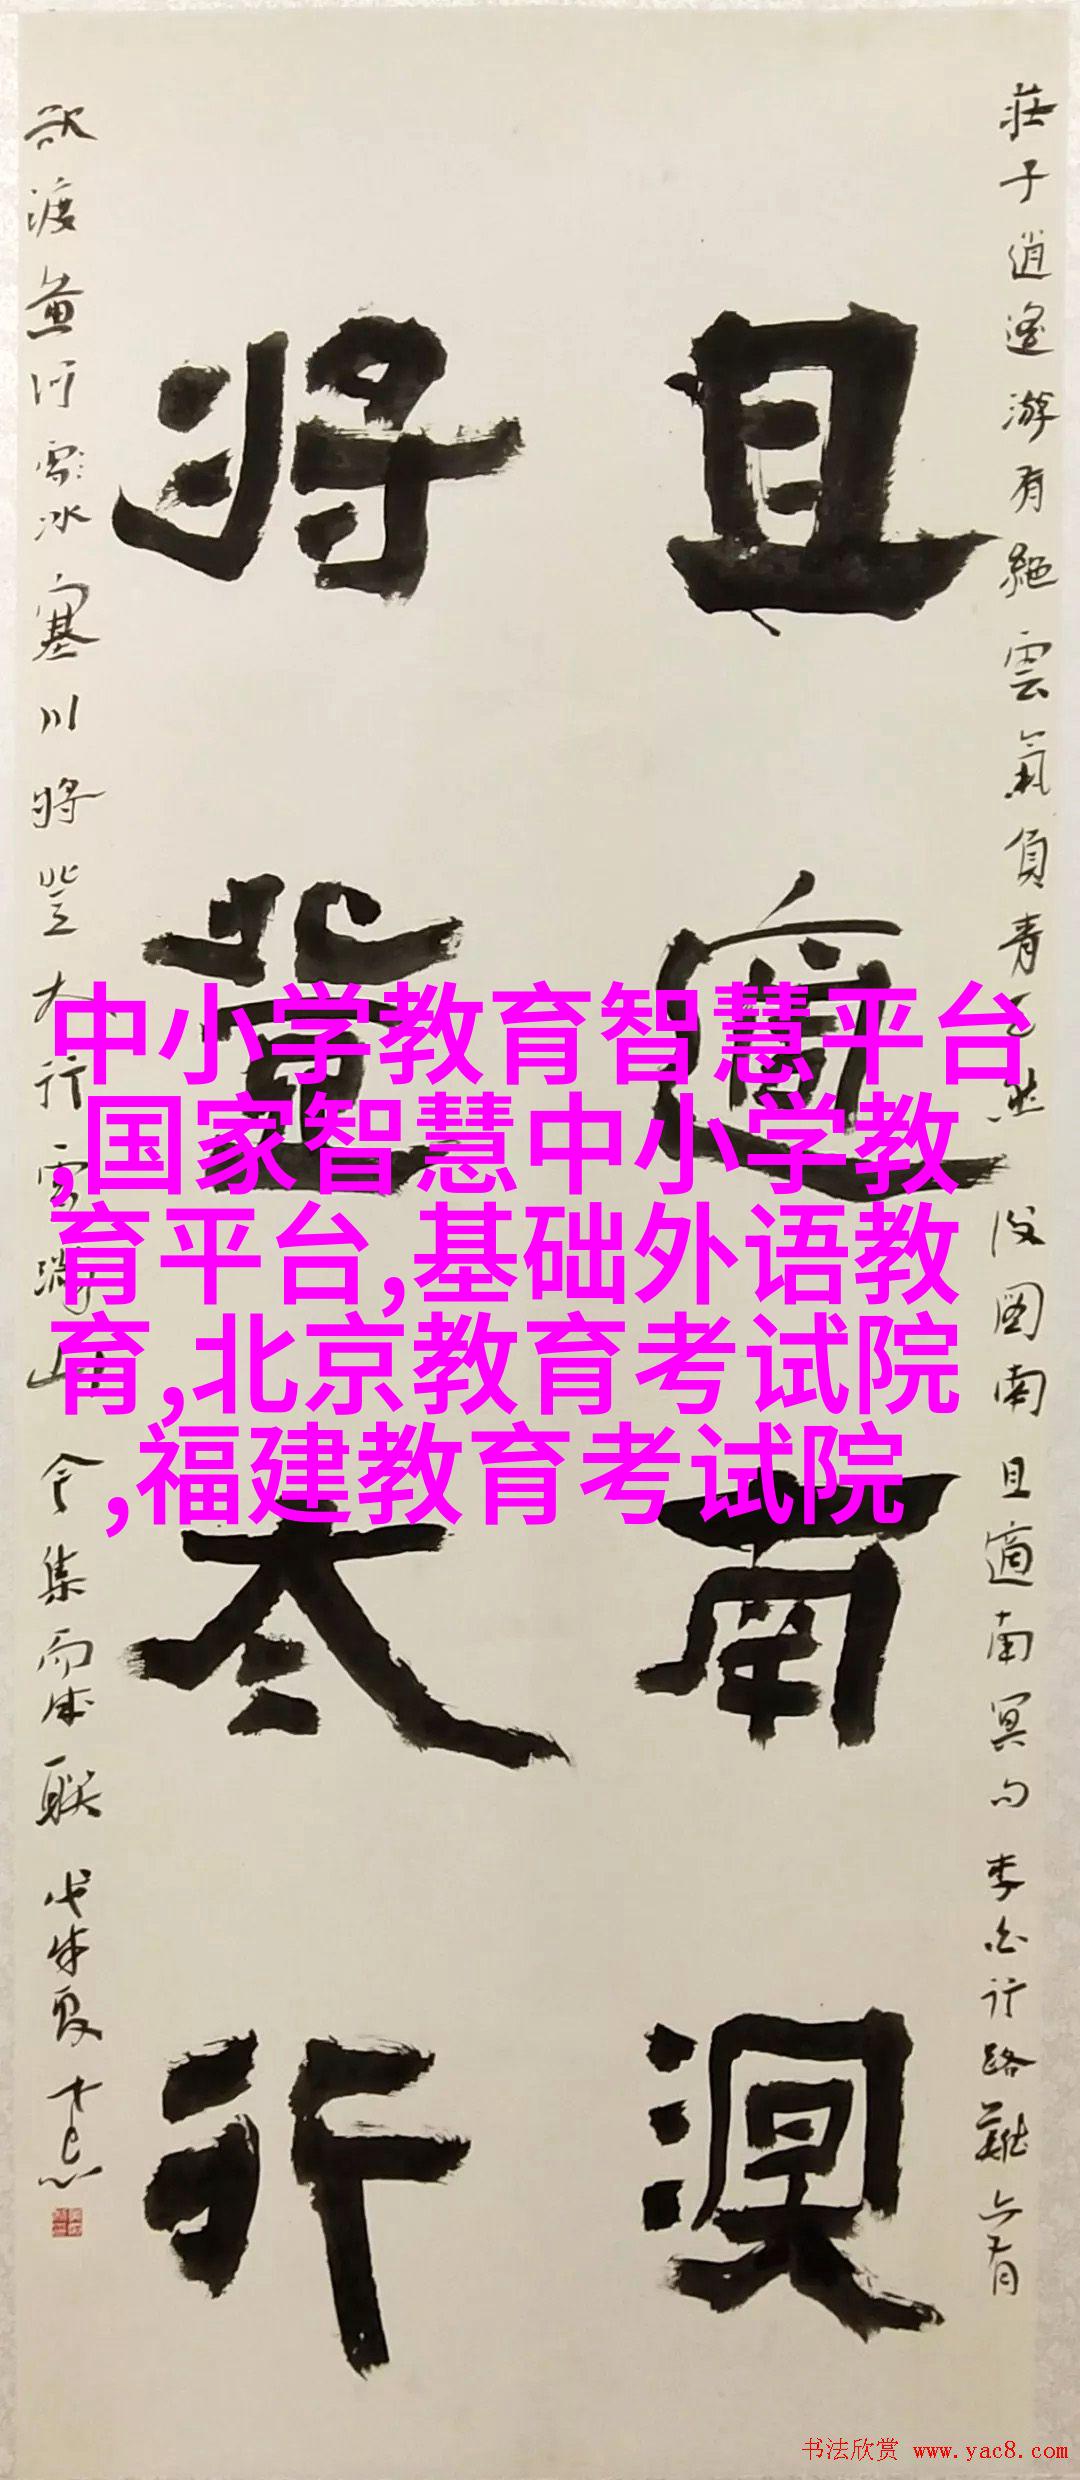 莊子逍遙游有絕雲氣負青天然後圖南且適南冥句李白行路難亦有
且適南溟
將登太行
欲渡黃河雪冰塞川將登太行雪滿山今集而成聯戊戌夏
中小学教育智慧平台
,国家智慧中小学教
育平台,基础外语教
育,北京教育考试院
,福建教育考试院
书法欣赏 www.yac8.com